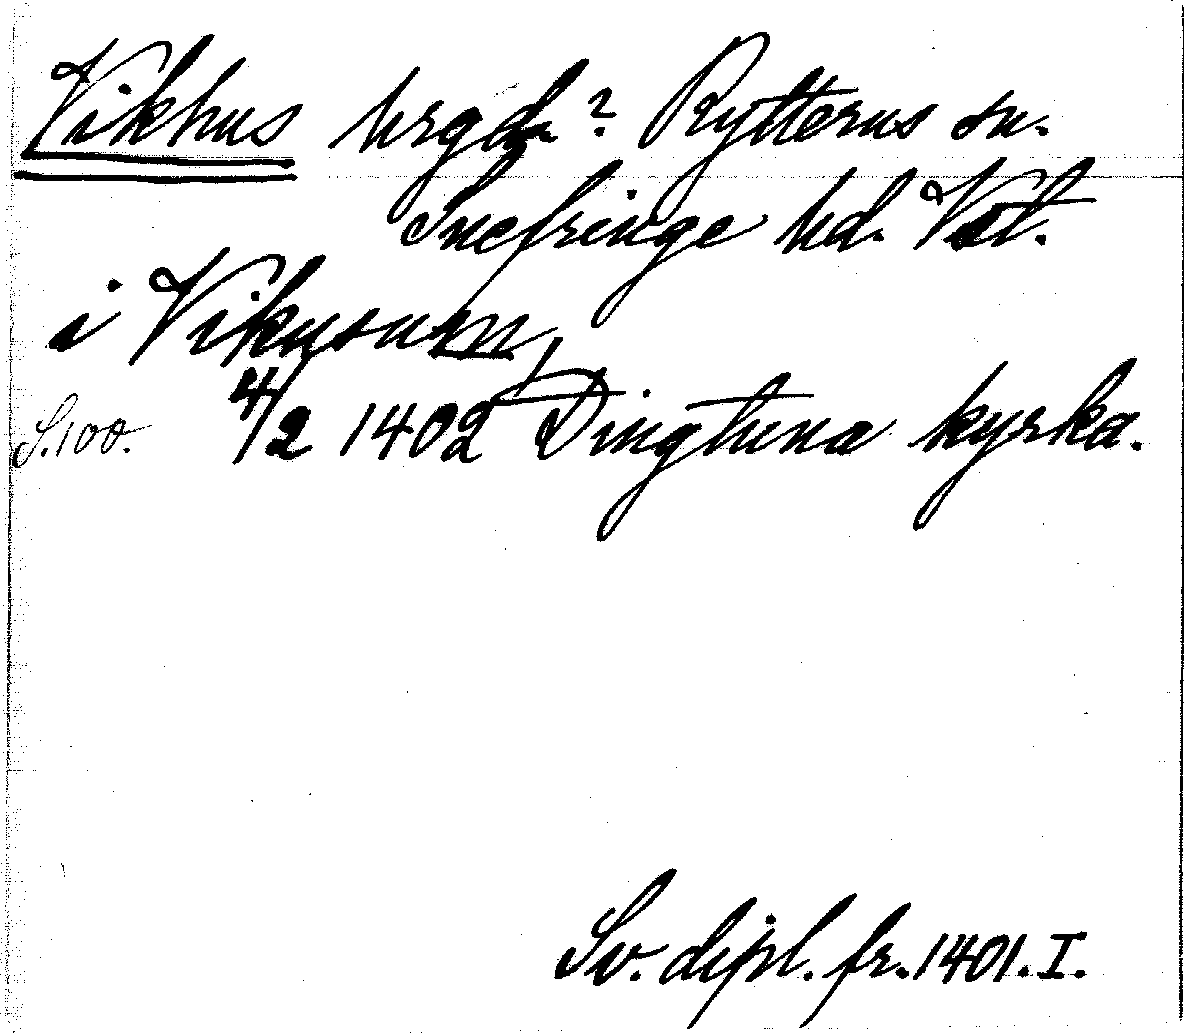 Vikhus hrgd.? Rytterns sn.
Snefringe hd. Vstl.
i Vikusum
S.100. 4/2 1402 Dingtuna kyrka.
Sv. dipl. fr. 1401. I.